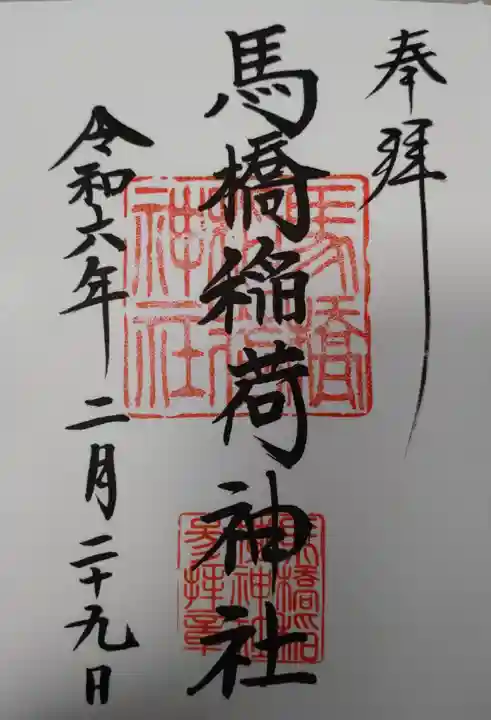 奉拝
馬橋稲荷神社
馬橋稲荷神社
馬橋稲荷神社参拝章
令和六年二月二十九日